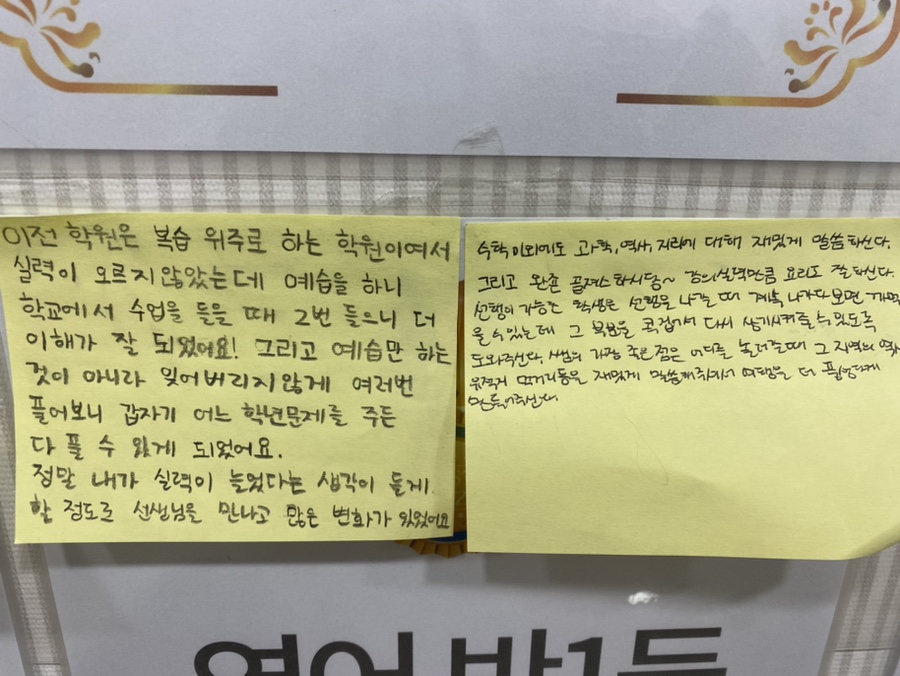 이전 학원은 복습 위주로 하는 학원이여서
실력이 오르지않았는데 예습을 하니
학교에서 수업을 들을 때 2번 들으니 더
이해가 잘 되었어요! 그리고 예습만 하는
것이 아니라 잊어버리지않게 여러번
풀어보니 갑자기 어느 학년문제를 주든
다 풀 수 있게 되었어요.
정말 내가 실력이 늘었다는 생각이 들게
할 정도로 선생님을 만나고 많은 변화가 있었어요
수학 이외에도 과학, 역사, 지리에 대해 재밌게 말씀하신다.
그리고 완존 골져스하시등~ 강의실력만큼 요리도 잘하신다.
선행이 가능한 학생은 선행을 나갈 때 계속 나가다 보면 까먹
을 수 있는데 그 부분을 콕 집어서 다시 상기시켜줄 수 있도록
도와주신다. 쌤의 가장 좋은 점은 어디를 놀러갈 때 그 지역의 역사
유적지 먹거리등을 재밌게 말씀해주셔서 여행을 더 풍성하게
만들어주신다.
영어 반1등